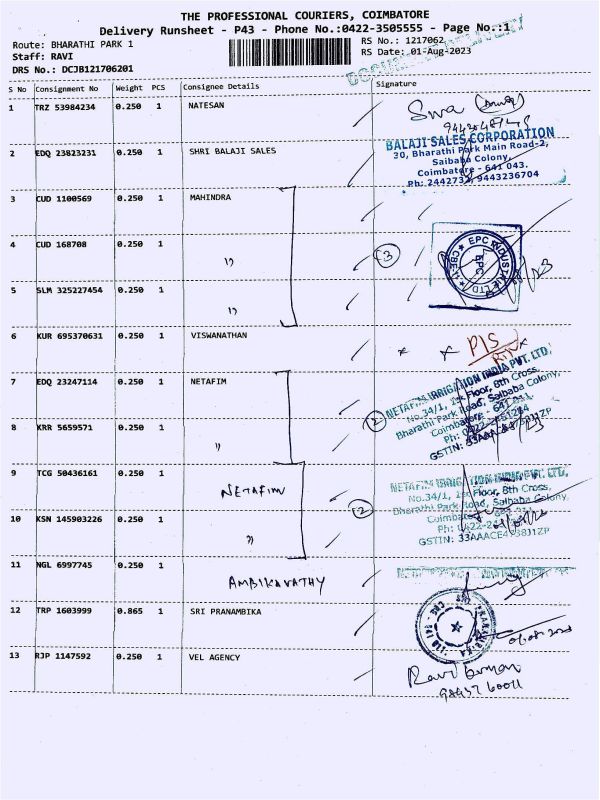 THE PROFESSIONAL COURIERS, COIMBATORE
Delivery Runsheet - P43 - Phone No.:0422-3505555 - Page No.:1
Route: BHARATHI PARK 1
RS No.: 1217062
Staff: RAVI
RS Date: 01-Aug-2023
DRS No.: DCJB121706201
S No Consignment No Weight PCS Consignee Details Signature
1 TRZ 53984234 0.250 1 NATESAN
BALAJI SALES CORPORATION
30, Bharathi Park Main Road-2,
Saibaba Colony,
Coimbatore - 641 043.
Ph: 2442732, 9443236704
2 EDQ 23823231 0.250 1 SHRI BALAJI SALES
3 CUD 1100569 0.250 1 MAHINDRA
4 CUD 168708 0.250 1 "
3
EPC INDUSTRIE LTD.
EPC
5 SLM 325227454 0.250 1 "
6 KUR 695370631 0.250 1 VISWANATHAN
P/S
7 EDQ 23247114 0.250 1 NETAFIM
2
NETAFIM IRRIGATION INDIA PVT. LTD,
No.34/1, 1st Floor, 8th Cross,
Bharathi Park Road, Saibaba Colony,
Coimbatore - 641 011
8 KRR 5659571 0.250 1 "
9 TCG 50436161 0.250 1 NETAFIM
NETAFIM IRRIGATION INDIA PVT. LTD,
No.34/1, 1st Floor, 8th Cross,
Bharathi Park Road, Saibaba Colony,
2
10 KSN 145903226 0.250 1 "
11 NGL 6997745 0.250 1 AMBIKAVATHY
12 TRP 1603999 0.865 1 SRI PRANAMBIKA
13 RJP 1147592 0.250 1 VEL AGENCY